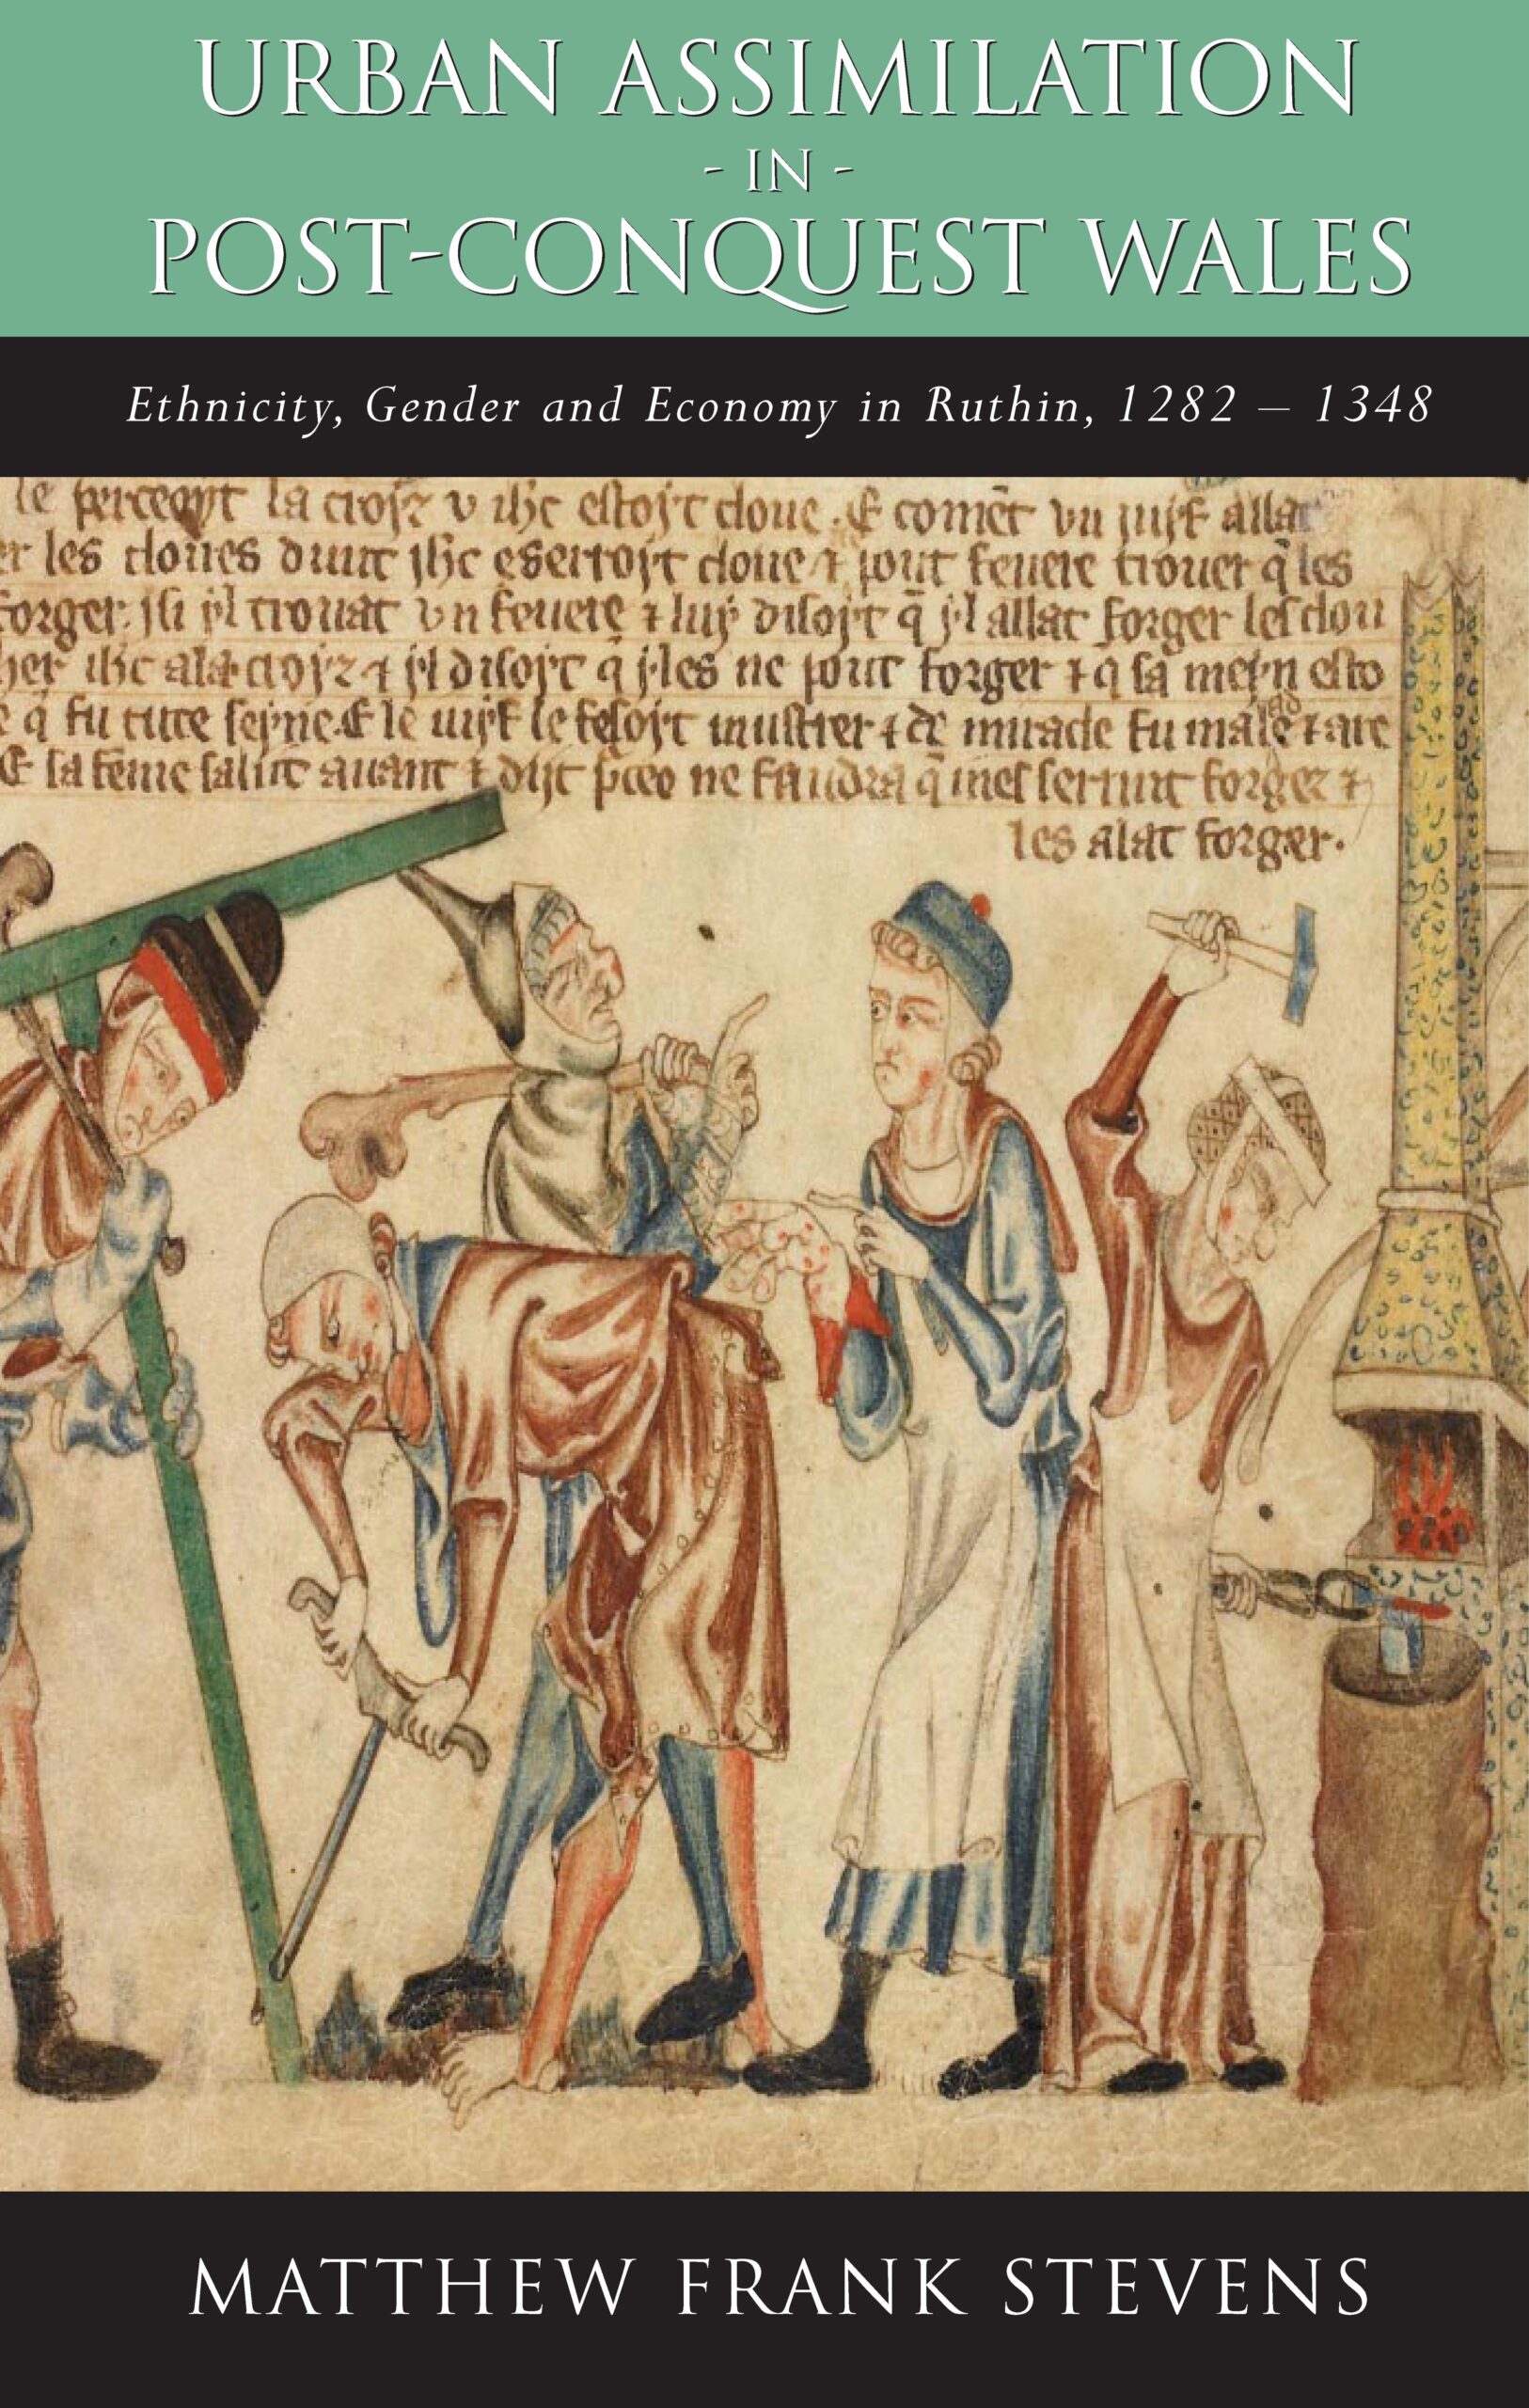 URBAN ASSIMILATION
- IN -
POST-CONQUEST WALES
Ethnicity, Gender and Economy in Ruthin, 1282 – 1348
le perceoyt la croiz v ihc estoyt cloue . E comēt vn juyf allat
er les cloues dunt ihc esertoyt cloue ⁊ pout feuere trouer q̄ les
forger. Isi yl trouat vn feuere ⁊ luy disoyt q̄ yl allat forger les clou
her ihc a la croyz ⁊ yl disoyt q̄ yles ne pout forger ⁊ q̄ sa meyn esto
e q̄ fu tute seyne. E le uiyf le fesoyt mustrer ⁊ de miracle fu malad ⁊ are
E sa feme salut auant ⁊ dyt ne faudra q̄ forger ⁊
les alat forger.
MATTHEW FRANK STEVENS